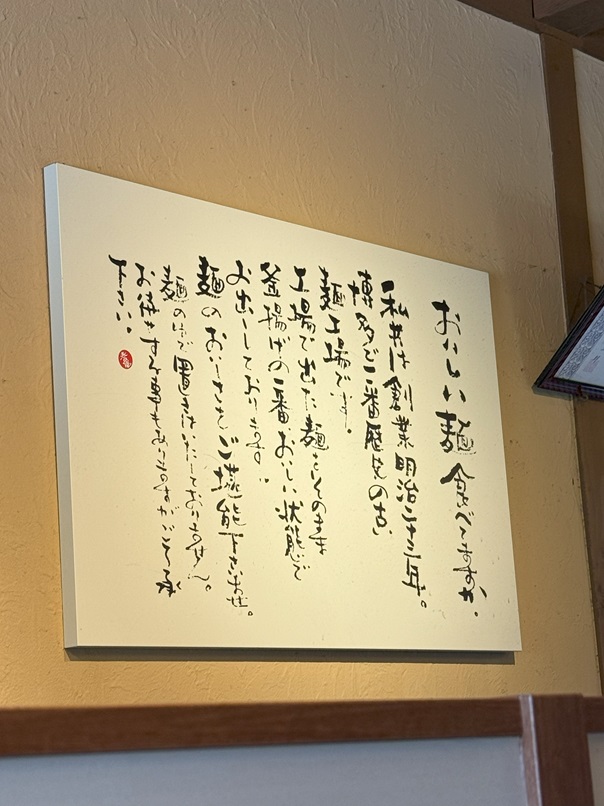 おいしい麺食べてますか。
私共は創業明治二十三年。
博多で一番歴史の古い
麺工場です。
工場で出た麺をそのまま
釜揚げの一番おいしい状態で
お出ししております。
麺のおいしさをご堪能下さいませ。
麺のゆで置きはいたしておりません。
お待たせする事もありますがご了承
下さい。